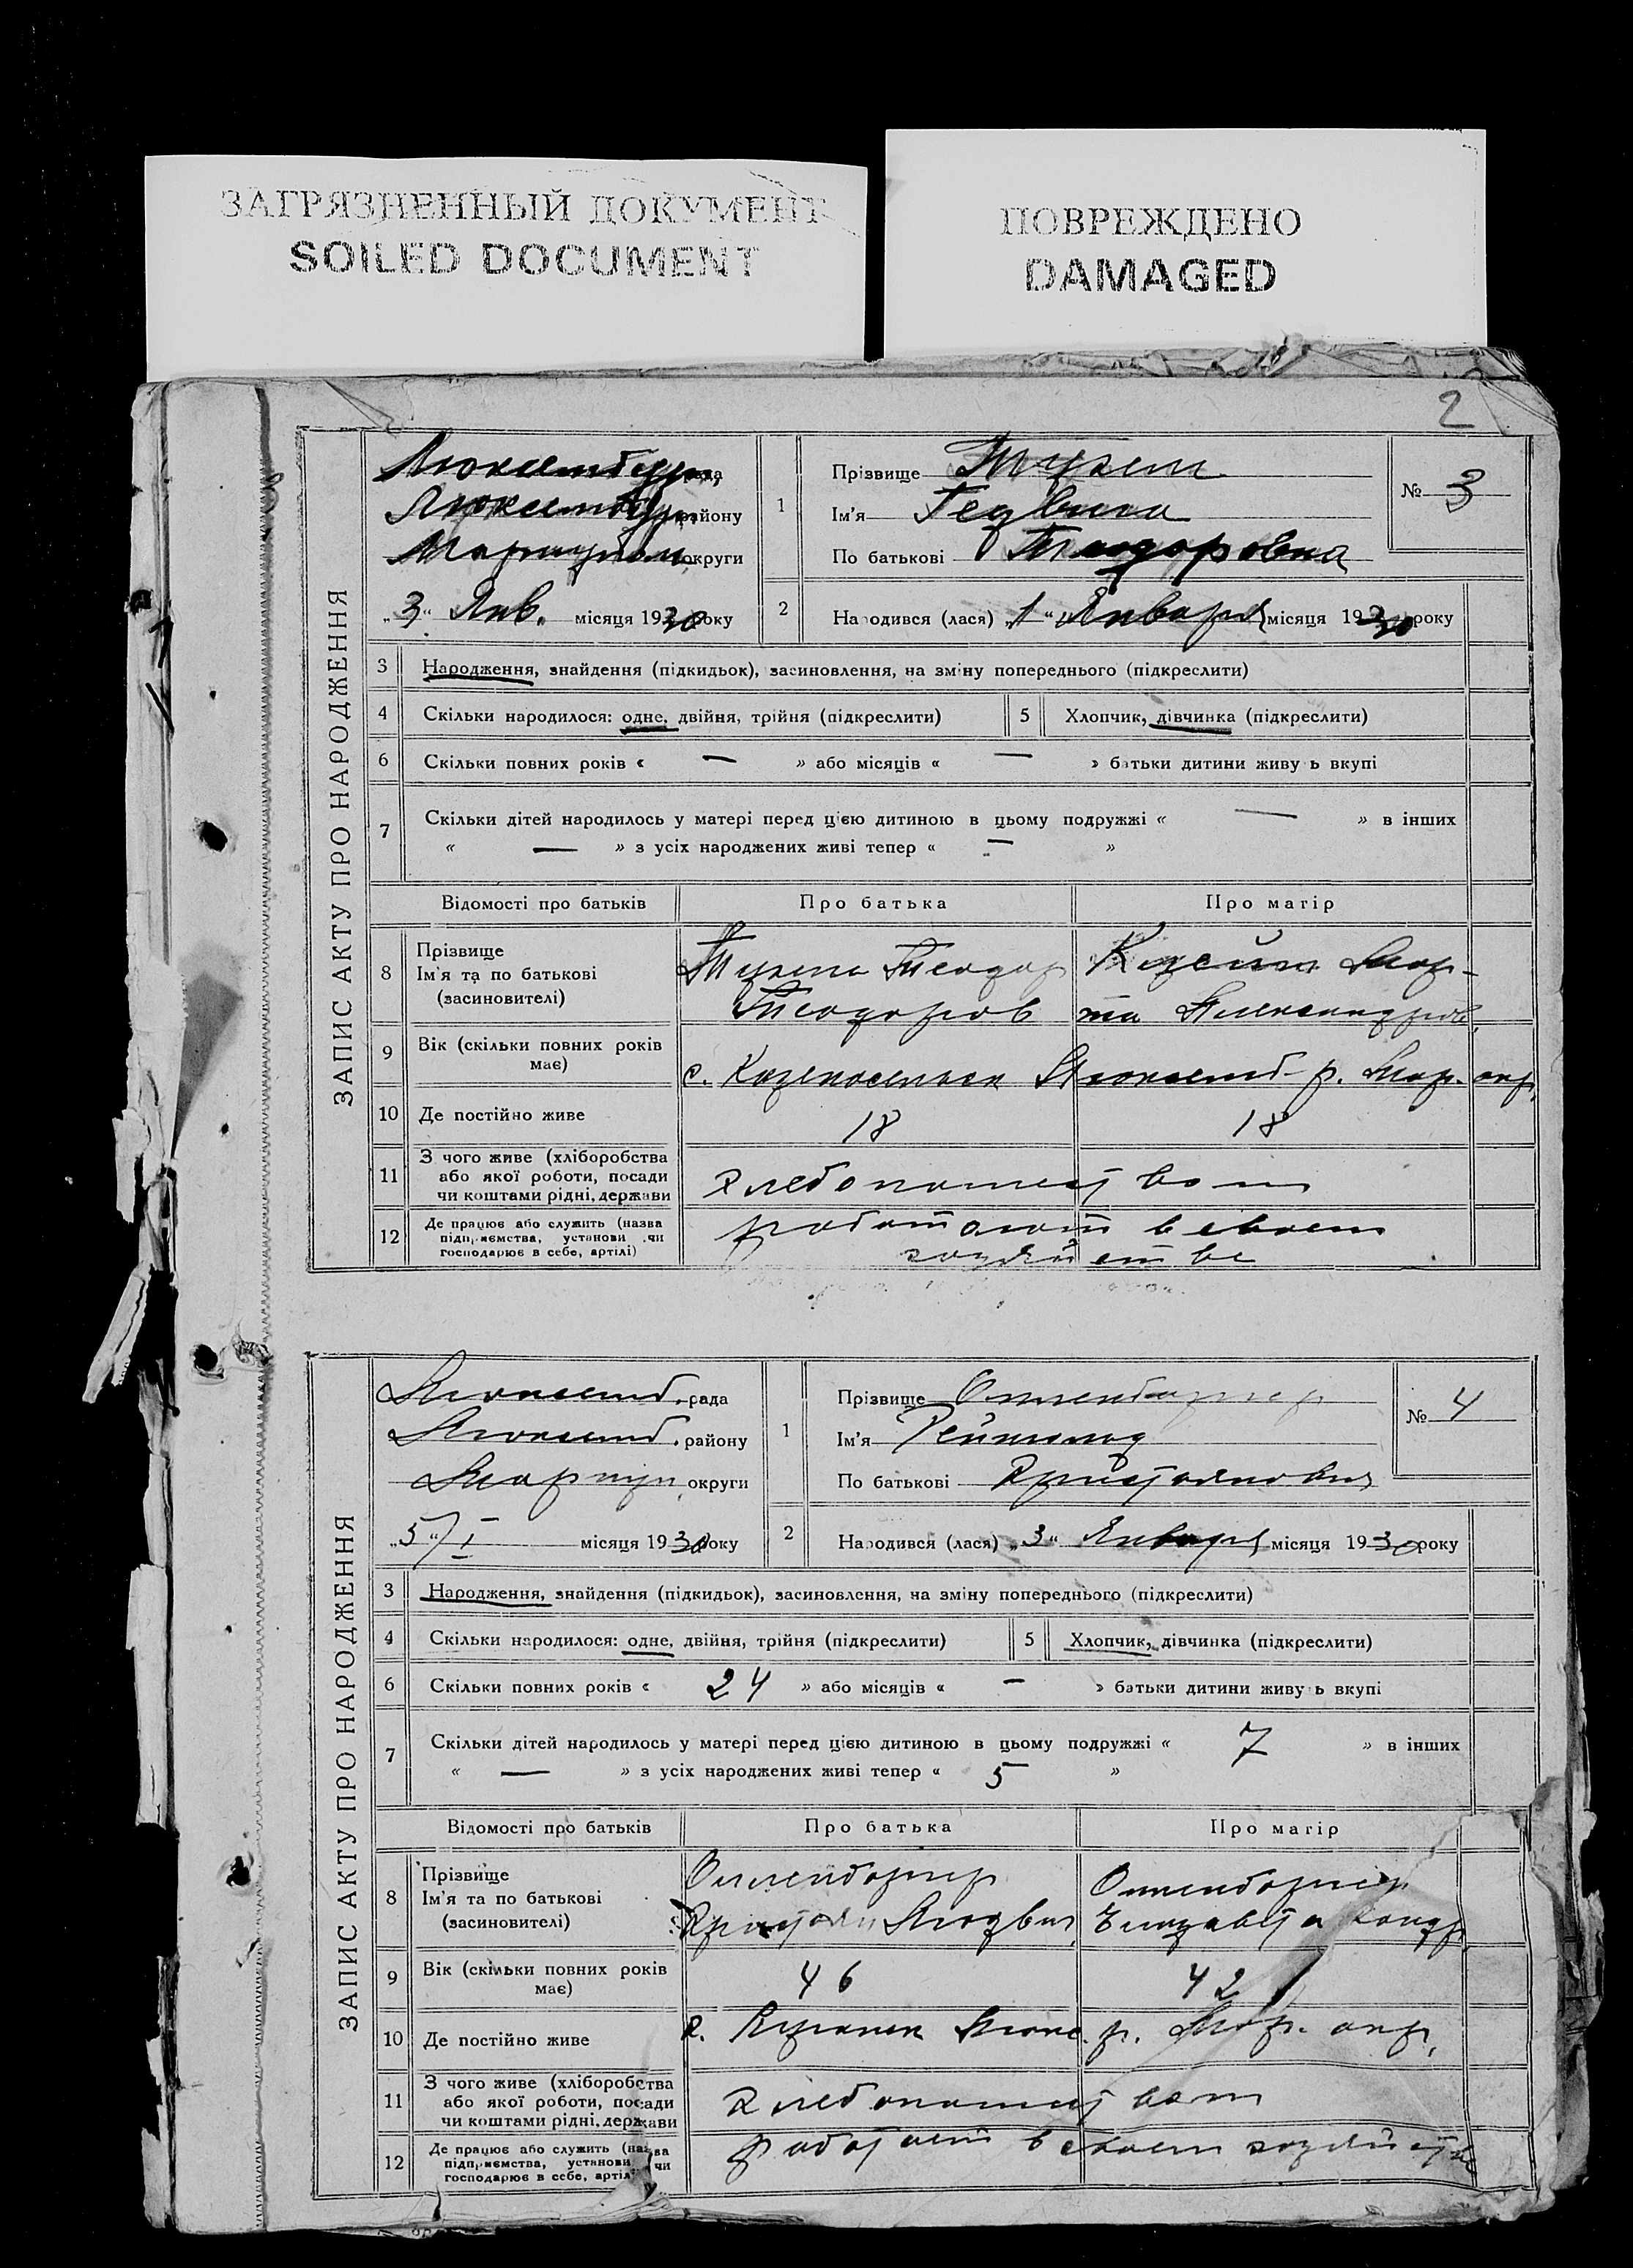 ЗАГРЯЗНЕННЫЙ ДОКУМЕНТ
SOILED DOCUMENT
ПОВРЕЖДЕНО
DAMAGED
2
ЗАПИС АКТУ ПРО НАРОДЖЕННЯ
Люксембур. рада
Люксембур. району
Мариупол. округи
„3“ Янв. місяця 1930 року
1
Прізвище
Ім'я Гедвига
По батькові Теодоровна
№ 3
2
Народився (лася) „1“ Января місяця 1930 року
3 Народження, знайдення (підкидьок), засиновлення, на зміну попереднього (підкреслити)
4 Скільки народилося: одне, двійня, трійня (підкреслити)
5 Хлопчик, дівчинка (підкреслити)
6 Скільки повних років « — » або місяців « — » батьки дитини живуть вкупі
7 Скільки дітей народилось у матері перед цією дитиною в цьому подружжі « — » в інших
« — » з усіх народжених живі тепер « — »
Відомості про батьків Про батька Про матір
8 Прізвище
Ім'я та по батькові
(засиновителі)
Теодор
Теодоров
Мар-
та Александров.
9 Вік (скільки повних років має)
с. Люксемб. р. Мар. окр.
10 Де постійно живе 18 18
11 З чого живе (хліборобства
або якої роботи, посади
чи коштами рідні, держави
хлебопашеством
12 Де працює або служить (назва
підприємства, установи чи
господарює в себе, артілі)
работают в своем
хозяйстве
ЗАПИС АКТУ ПРО НАРОДЖЕННЯ
Люксемб. рада
Люксемб. району
Мариуп. округи
„5“/I місяця 1930 року
1
Прізвище Олленбургер
Ім'я Рейнголд
По батькові Христианович
№ 4
2
Народився (лася) „3“ Января місяця 1930 року
3 Народження, знайдення (підкидьок), засиновлення, на зміну попереднього (підкреслити)
4 Скільки народилося: одне, двійня, трійня (підкреслити)
5 Хлопчик, дівчинка (підкреслити)
6 Скільки повних років « 24 » або місяців « - » батьки дитини живуть вкупі
7 Скільки дітей народилось у матері перед цією дитиною в цьому подружжі « 7 » в інших
« — » з усіх народжених живі тепер « 5 »
Відомості про батьків Про батька Про матір
8 Прізвище
Ім'я та по батькові
(засиновителі)
Христиан Людвиг.
Елизавета Кондр.
9 Вік (скільки повних років має) 46 42
10 Де постійно живе Люкс. р. Мар. окр.
11 З чого живе (хліборобства
або якої роботи, посади
чи коштами рідні, держави
хлебопашеством
12 Де працює або служить (назва
підприємства, установи чи
господарює в себе, артілі
работает в своем хозяйстве